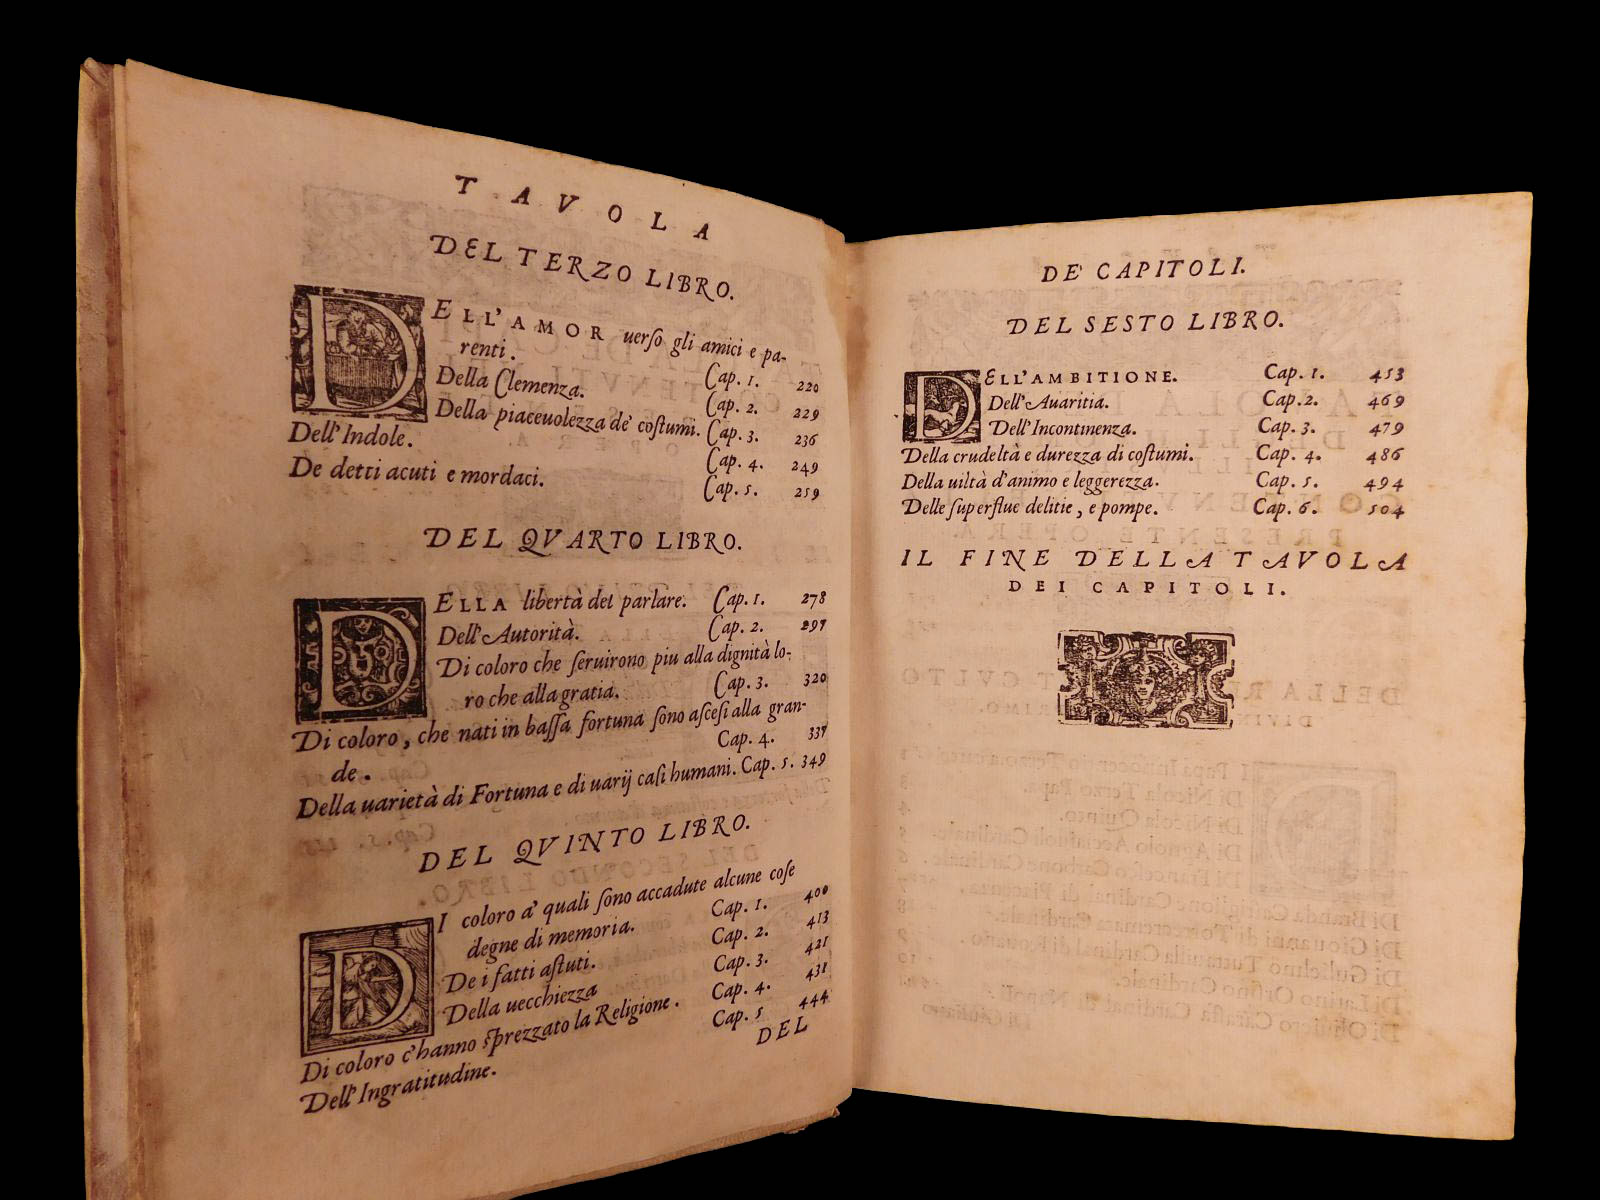 TAVOLA
DEL TERZO LIBRO.
DELL'AMOR uerſo gli amici e pa-
renti. Cap. 1. 220
Della Clemenza. Cap. 2. 229
Della piaceuolezza de' coſtumi. Cap. 3. 236
Dell'Indole. Cap. 4. 249
De detti acuti e mordaci. Cap. 5. 259
DEL QVARTO LIBRO.
DELLA libertà del parlare. Cap. 1. 278
Dell'Autorità. Cap. 2. 297
Di coloro che ſeruirono piu alla dignità lo-
ro che alla gratia. Cap. 3. 320
Di coloro, che nati in baſſa fortuna ſono aſceſi alla gran-
de. Cap. 4. 337
Della uarietà di Fortuna e di uarij caſi humani. Cap. 5. 349
DEL QVINTO LIBRO.
DI coloro a' quali ſono accadute alcune coſe
degne di memoria. Cap. 1. 400
De i fatti aſtuti. Cap. 2. 413
Della uecchiezza Cap. 3. 421
Di coloro c'hanno ſprezzato la Religione. Cap. 4. 431
Dell'Ingratitudine. Cap. 5 444
DEL
DE' CAPITOLI.
DEL SESTO LIBRO.
DELL'AMBITIONE. Cap. 1. 453
Dell'Auaritia. Cap. 2. 469
Dell'Incontinenza. Cap. 3. 479
Della crudeltà e durezza di coſtumi. Cap. 4. 486
Della uiltà d'animo e leggerezza. Cap. 5. 494
Delle ſuperflue delitie, e pompe. Cap. 6. 504
IL FINE DELLA TAVOLA
DEI CAPITOLI.